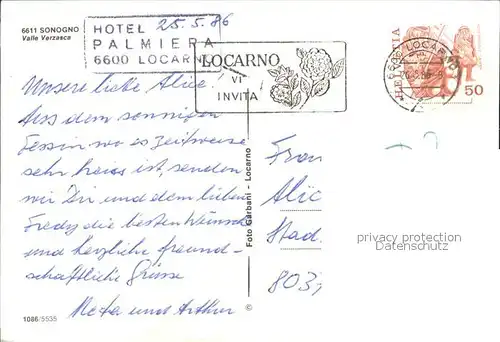 6611 SONOGNO
Valle Verzasca
HOTEL 25.5.86
PALMIERA
6600 LOCARNO
LOCARNO
VI
INVITA
HELVETIA
50
6600 LOCARNO
Unsere liebe Alice!
Aus dem sonnigen
Tessin wo es zeitweise
sehr heiss ist, senden
wir Dir und dem lieben
Fredy die besten Wünsche
und herzliche freund-
schaftliche Grüsse
Meta und Arthur
Foto Garbani - Locarno
©
Frau
Alic
Stad
803
privacy protection
Datenschutz
1086/5535